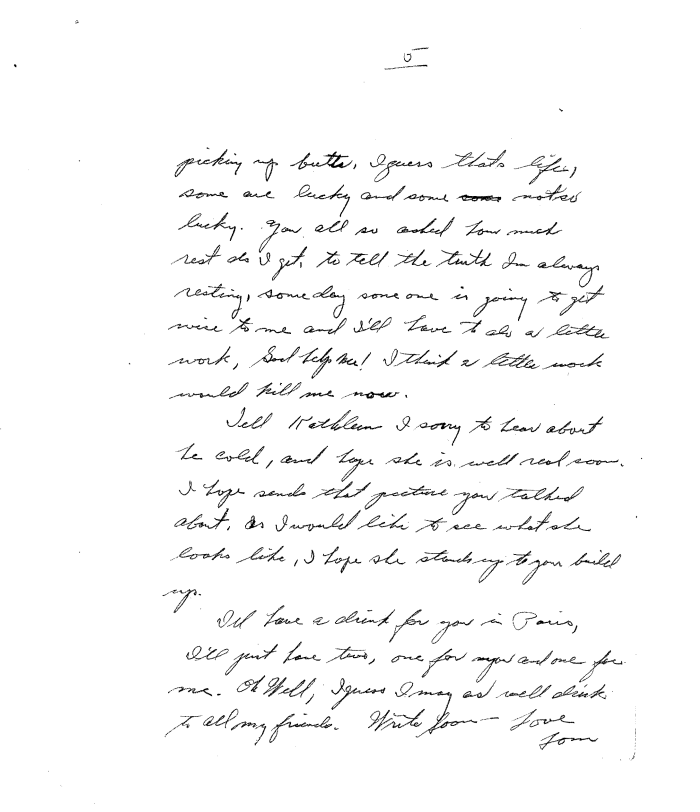 5
picking up butts, I guess thats life,
some are lucky and some some not so
lucky. You all so asked how much
rest do I get, to tell the truth Im always
resting, someday someone is going to get
wise to me and I'll have to do a little
work, God help me! I think a little work
would kill me now.
Tell Kathleen I sorry to hear about
he cold, and hope she is well real soon.
I hope sends that picture you talked
about, as I would like to see what she
looks like, I hope she stands up to your build
up.
I'll have a drink for you in Paris,
I'll just have two, one for and one for
me. Oh Well, I guess I may as well drink
to all my friends. Write Soon - Love
Tom